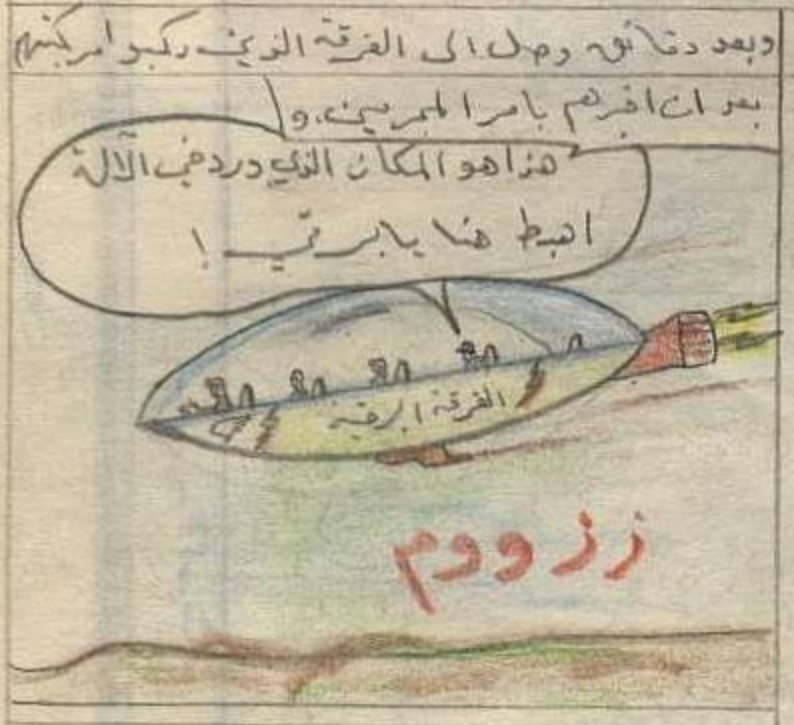 وبعد دقائق وصل الى الفرقة الذين ركبوا مركبتهم
بعد ان اخبرهم بامر المجرمين. و
هذا هو المكان الذي ورد في الآلة
اهبط هنا يا برقي !
الفرقة البرقية
ززووم